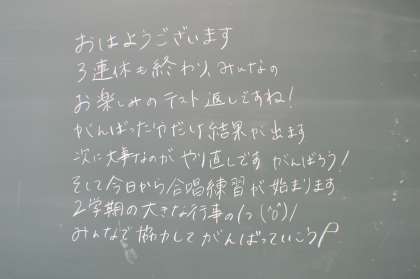 おはようございます
3連休も終わり、みんなの
お楽しみのテスト返しですね!
がんばった分だけ結果が出ます
次に大事なのが やり直しです がんばろう!
そして今日から合唱練習が始まります
2学期の大きな行事の1つ(^o^)!
みんなで協力してがんばっていこう